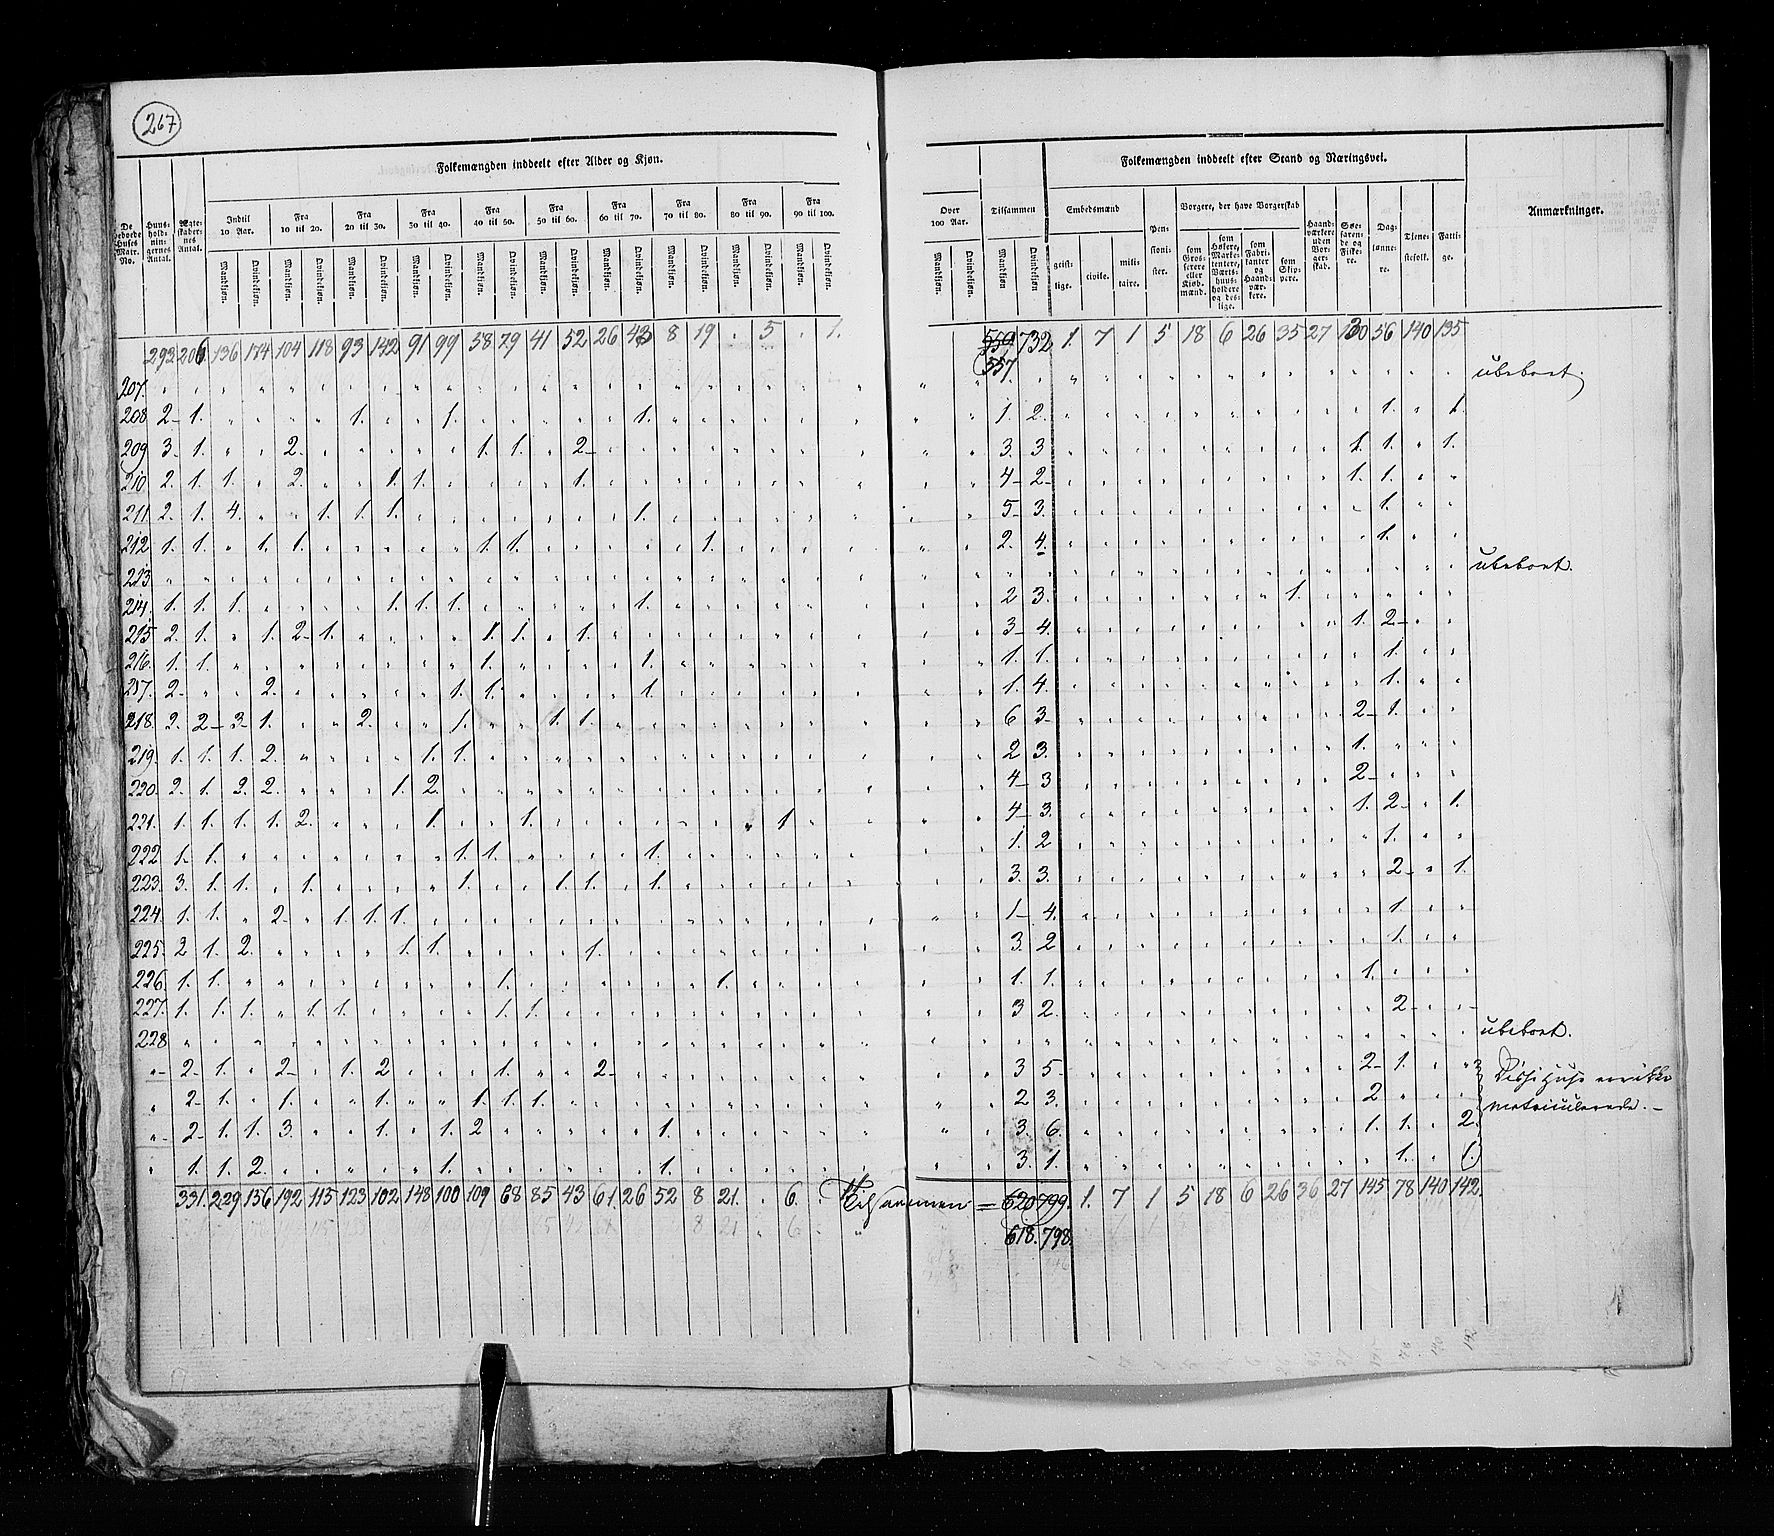 267
Folkemængden inddeelt efter Alder og Kjøn.
Folkemængden inddeelt efter Stand og Næringsvei.
De beboede Huses Matr. No.
Huus-holdningernes Antal.
Ægteskabernes Antal.
Indtil 10 Aar.
Fra 10 til 20.
Fra 20 til 30.
Fra 30 til 40.
Fra 40 til 50.
Fra 50 til 60.
Fra 60 til 70.
Fra 70 til 80.
Fra 80 til 90.
Fra 90 til 100.
Over 100 Aar.
Tilsammen
Embedsmænd
Pensionister.
Borgere, der have Borgerskab
Haandværkere uden Borgerskab.
Søefarende og Fiskere.
Dagleønnere.
Tjenestefolk.
Fattige.
Anmærkninger.
Mandkjøn. Qvindekjøn. Mandkjøn. Qvindekjøn. Mandkjøn. Qvindekjøn. Mandkjøn. Qvindekjøn. Mandkjøn. Qvindekjøn. Mandkjøn. Qvindekjøn. Mandkjøn. Qvindekjøn. Mandkjøn. Qvindekjøn. Mandkjøn. Qvindekjøn. Mandkjøn. Qvindekjøn. Mandkjøn. Qvindekjøn. Mandkjøn Qvindekjøn. geistlige. civile. militaire. som Grosserere eller Kjøbmænd. som Høkere, Marketentere, Værtshuusholdere og deslige. som Fabrikanter og Haandværkere. som Skippere.
292 206 136 174 104 118 93 142 91 99 58 79 41 52 26 43 8 19 . 5 . 1. 559 732 1 7 1 5 18 6 26 35 27 130 56 140 135
557
207. ubeboet.
208 2- 1. 1. 1. 1. 1. 2. 1. 1.
209 3. 1. 2. 1. 1. 2- 3. 3 1. 1. 1.
210 2. 1. 1. 2. 1. 1. 1. 4- 2- 1. 1.
211 2. 1. 4. 1. 1. 1. 1. 5- 3. 1.
212 1. 1. 1. 1. 1. 1. 1. 2. 4. 1.
213 ubeboet.
214. 1. 1. 1. 1. 1. 1. 1. 2 3. 1.
215 2. 1. 1. 2- 1. 1. 1. 1. 3- 4. 1. 2-
216. 1. 1. 1. 1. 1. 1. 1.
217. 2- 2. 1. 1. 1. 1. 4. 1.
218. 2. 2- 3- 1. 2. 1. 1. 1. 6 3- 2- 1.
219. 1. 1. 1. 2. 1. 1. 2 3. 1.
220. 2. 1. 2. 2. 1. 2. 4- 3 2-
221. 1. 1. 1. 1. 2. 1. 1. 1 4- 3. 1. 2- 1.
222 1. 1. 1. 1. 1. 1. 2 1.
223. 3. 1. 1. 1. 1. 1. 1. 1. 3. 3. 2- 1.
224. 1. 1. 2- 1. 1. 1. 1- 4. 1.
225. 2 1. 2. 1. 1. 1. 3. 2 1.
226. 1. 1. 1. 1. 1. 1. 1.
227. 1. 1. 1. 1. 1. 1. 1. 3 2. 2-
228 ubeboet.
„- 2- 1. 2- 1. 2 1. 2- 3 5- 2- 1. Disse Huse ere ikke
„ 2- 1. 1. 1. 1. 1. 1. 2 3. 2 matriculerede. -
„- 2- 1. 1. 3. 1. 1. 2 1. 3. 6. 1. 1. 2.
„ 1. 1. 2. 1. 1. 3. 1. 1. 1.
331. 229 156 192 115 123 102 148 100 109 68 85 43 61. 26 52 8 21. . 6. Tilsammen = 620 799. 1. 7 1 5 18 6 26 36 27 145 78 140 142.
618. 798.